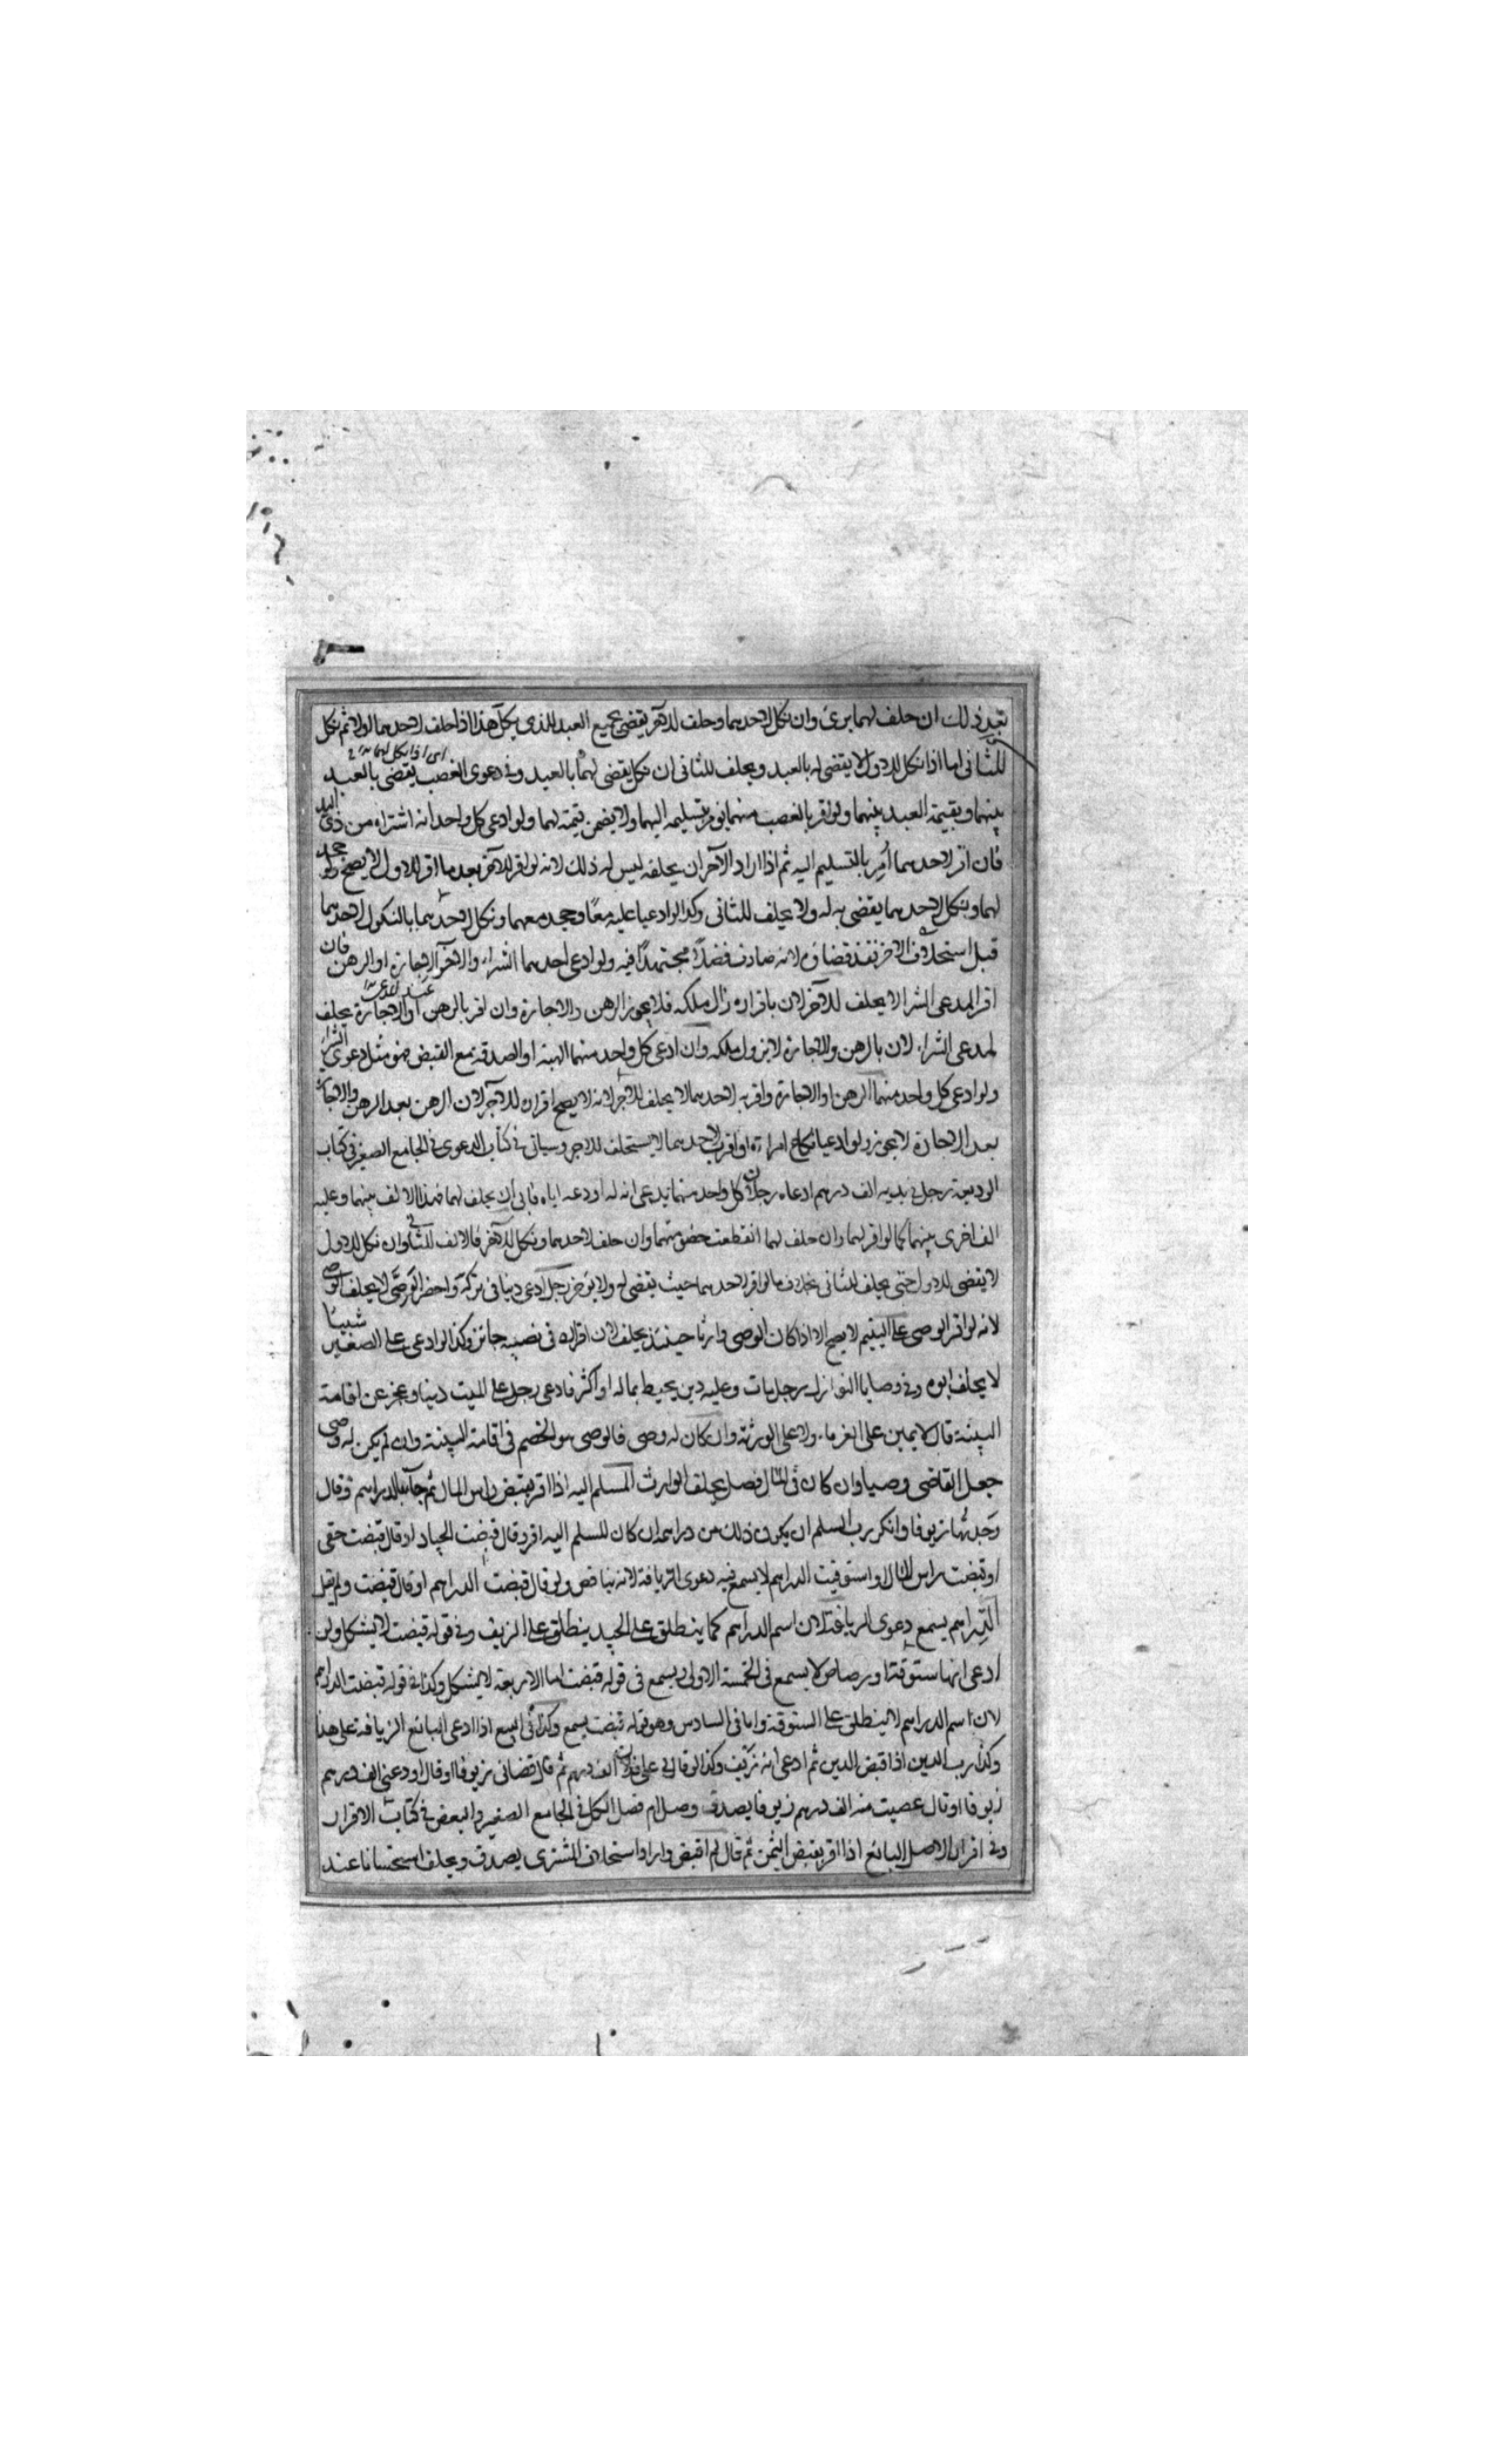 بعد ذلك ان حلف لهما برئ وان نكل لاحدهما وحلف للآخر يقضى بجميع العبد للذى نكل هذا اذا حلف لاحدهما اولا ثم نكل
للثانى اما اذا نكل للاول لا يقضى له بالعبد ويحلف للثانى ان نكل يقضى لهما بالعبد وفى دعوى الغصب يقضى بالعبد
اى اذا نكل لهما
بينهما وبقيمة العبد بينهما ولو اقر بالغصب منهما يؤمر بتسليمه اليهما ولا يضمن قيمته لهما ولو ادعى كل واحد انه اشتراه من ذى اليد
فان اقر لاحدهما أمر بالتسليم اليه ثم اذا اراد الآخر ان يحلفه ليس له ذلك لانه لو اقر للآخر بعد ما اقر للاول لا يصح ولو جحد
لهما ونكل لاحدهما يقضى به له ولا يحلف للثانى وكذا لو ادعيا عليه معا وجحد معهما ونكل لاحدهما بالنكول لاحدهما
قبل استحلاف الآخر نفذ قضاؤه لانه صادف فصلا مجتهدا فيه ولو ادعى احدهما الشراء والآخر الاجارة او الرهن فان
اقر لمدعى الشرا لا يحلف للآخر لان باقراره زال ملكه فلا يجوز الرهن والاجارة وان اقر بالرهن او الاجارة يحلف
لمدعى الشراء لان بالرهن والاجارة لا يزول ملكه وان ادعى كل واحد منهما الهبة او الصدقة مع القبض فهو مثل دعوى الشرا
ولو ادعى كل واحد منهما الرهن او الاجارة واقر به لاحدهما لا يحلف للآخر لانه لا يصح اقراره للآخر لان الرهن بعد الرهن والاجارة
بعد الاجارة لا يجوز ولو ادعيا نكاح امراة واقرت لاحدهما لا يستحلف للاخر وسياتى فى كتاب الدعوى فى الجامع الصغير فى كتاب
الوديعة رجل فى يديه الف درهم ادعاه رجلان كل واحد منهما يدعى انه له اودعه اياه فابى ان يحلف لهما فهذا الالف بينهما وعليه
الف اخرى بينهما كما لو اقر لهما وان حلف لهما انقطعت خصومتهما وان حلف لاحدهما ونكل للآخر فالالف للثانى وان نكل للاول
لا يقضى للاول حتى يحلف للثانى بخلاف ما لو اقر لاحدهما حيث يقضى له ولا يؤخر رجل ادعى دينا فى تركة واحضر الوصى لا يحلف الوصى
لانه لو اقر الوصى على اليتيم لا يصح الا اذا كان الوصى وارثا حينئذ يحلف لان اقراره فى نصيبه جائز وكذا لو ادعى على الصغير شيئا
لا يحلف ابوه وفى وصايا النوازل رجل مات وعليه دين يحيط بماله او اكثر فادعى رجل على الميت دينا وعجز عن اقامة
البينة قال لا يمين على الغرماء ولا على الورثة وان كان له وصى فالوصى هو الخصم فى اقامة البينة وان لم يكن له وصى
جعل القاضى وصيا وان كان فى المال فضل يحلف الوارث المسلم اليه اذا اقر بقبض راس المال ثم جاء بالدراهم وقال
وجدتها زيوفا وانكر رب السلم ان يكون ذلك من دراهمه ان كان المسلم اليه اقر وقال قبضت الجياد او قال قبضت حقى
او قبضت راس المال او استوفيت الدراهم لا يسمع فيه دعوى الزيافة لانه يناقض ولو قال قبضت الدراهم او قال قبضت ولم يقل
الدراهم يسمع دعوى الزيافة لان اسم الدراهم كما ينطلق على الجيد ينطلق على الزيف وفى قوله قبضت لا يشكل ولو
ادعى انها ستوقة او رصاص لا يسمع فى الخمسة الاولى ويسمع فى قوله قبضت اما الاربعة لا يشكل وكذا فى قوله قبضت الدراهم
لان اسم الدراهم لا ينطلق على الستوقة واما فى السادس وهو قوله قبضت يسمع وكذا فى البيع اذا ادعى البائع الزيافة على هذا
وكذا رب الدين اذا قبض الدين ثم ادعى انه زيف وكذا لو قال لى على فلان الف درهم ثم قال قضانى زيوفا او قال اودعنى الف درهم
زيوفا او قال غصبت منه الف درهم زيوفا يصدق وصل ام فصل الكل فى الجامع الصغير والبعض فى كتاب الاقرار
وفى اقرار الاصل البائع اذا اقر بقبض الثمن ثم قال لم اقبض واراد استحلاف المشترى يصدق ويحلف استحسانا عند